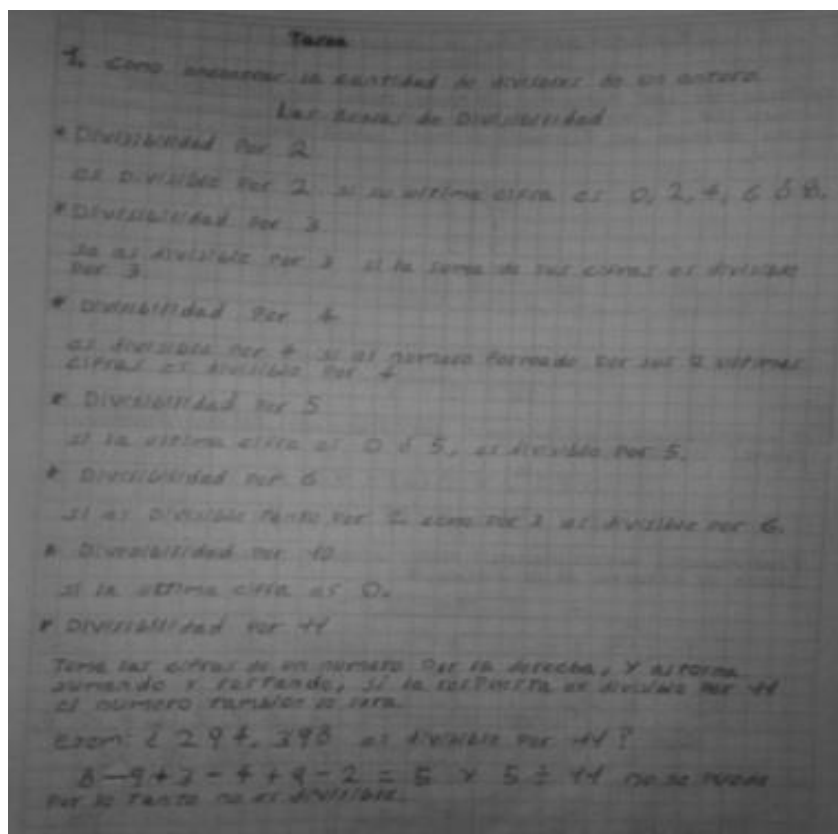 Tarea
1. Como encontrar la cantidad de divisores de un entero.
Las Reglas de Divisibilidad
* Divisibilidad Por 2
es Divisible Por 2 si su ultima cifra es 0, 2, 4, 6 ó 8.
* Divisibilidad Por 3
es divisible Por 3 si la suma de sus cifras es divisible
Por 3.
* Divisibilidad Por 4
es divisible Por 4 si el numero formado Por sus 2 ultimas
cifras es divisible Por 4
* Divisibilidad Por 5
si la ultima cifra es 0 ó 5, es divisible Por 5.
* Divisibilidad Por 6
si es Divisible tanto Por 2 como Por 3 es divisible Por 6.
* Divisibilidad Por 10
si la ultima cifra es 0.
* Divisibilidad Por 11
Toma las cifras de un numero Por la derecha, Y alterna
sumando Y restando, si la respuesta es divisible Por 11
el numero tambien lo sera.
Ejem: ¿ 294,398 es divisible Por 11?
8-9+3-4+9-2 = 5 Y 5 ÷ 11 no se Puede
Por lo Tanto no es divisible.